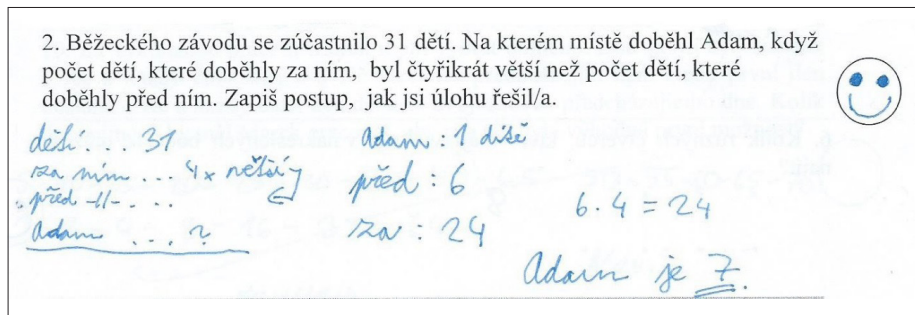 2. Běžeckého závodu se zúčastnilo 31 dětí. Na kterém místě doběhl Adam, když
počet dětí, které doběhly za ním, byl čtyřikrát větší než počet dětí, které
doběhly před ním. Zapiš postup, jak jsi úlohu řešil/a.
dětí ... 31
za ním ... 4x větší
před -||- ...
Adam ... ?
Adam: 1 dítě
před: 6
za: 24
6 · 4 = 24
Adam je 7.